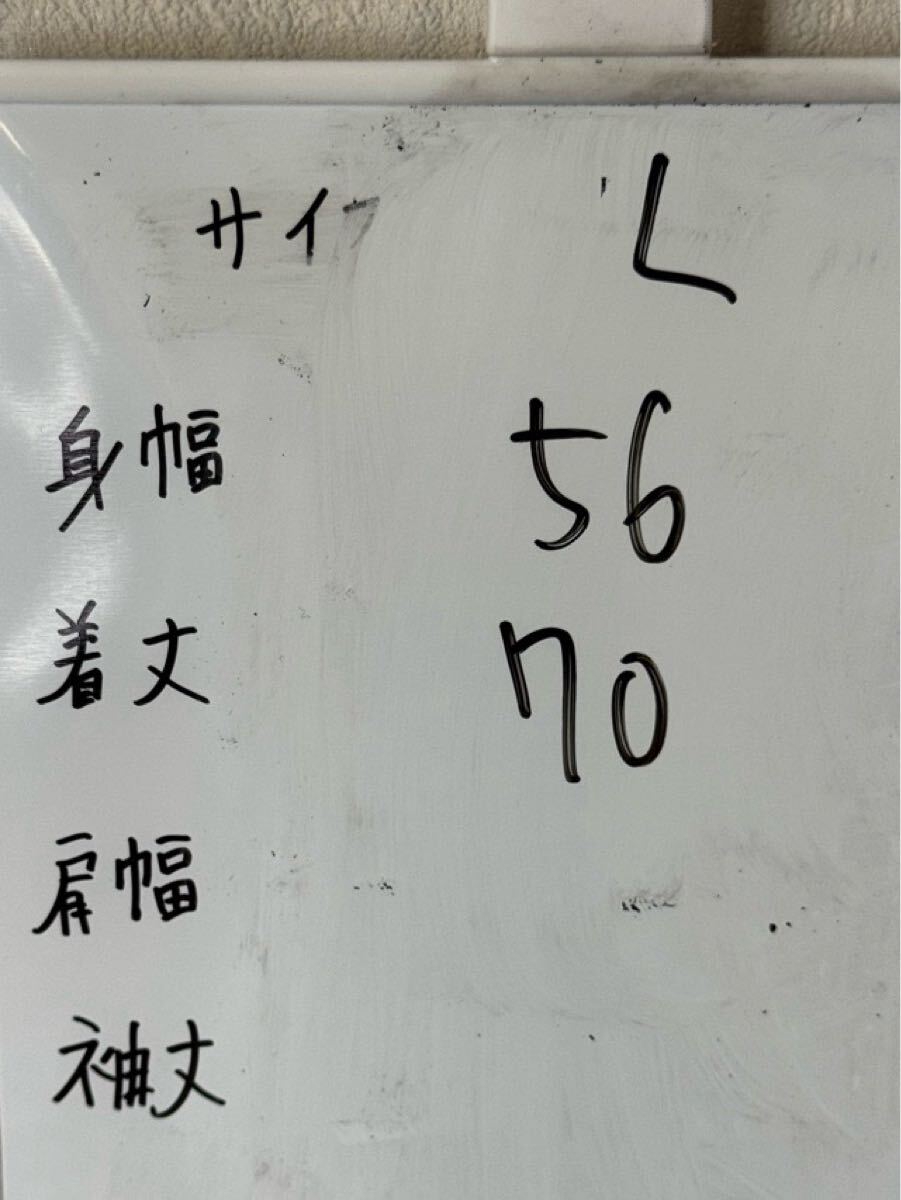 サイ L
身幅 56
着丈 70
肩幅
袖丈